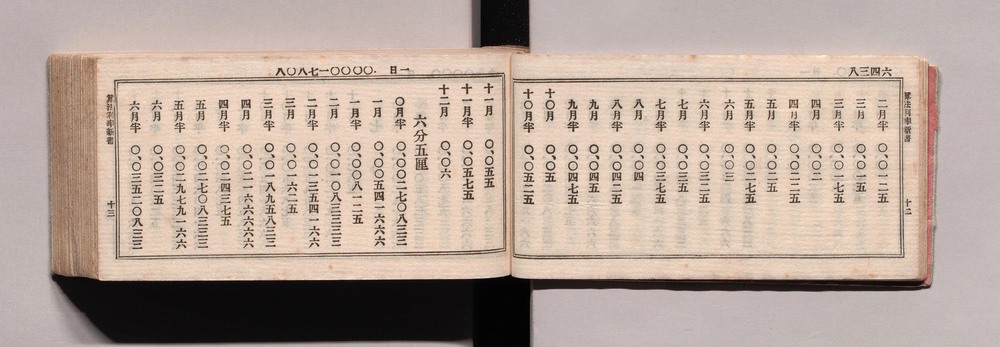 六四三八
算法利率新書
十二
二月半 〇、〇一二五
三月 〇、〇一五
三月半 〇、〇一七五
四月 〇、〇二
四月半 〇、〇二二五
五月 〇、〇二五
五月半 〇、〇二七五
六月 〇、〇三
六月半 〇、〇三二五
七月 〇、〇三五
七月半 〇、〇三七五
八月 〇、〇四
八月半 〇、〇四二五
九月 〇、〇四五
九月半 〇、〇四七五
十〇月 〇、〇五
十〇月半 〇、〇五二五
一日 、〇〇〇〇一七八〇八
十一月 〇、〇五五
十一月半 〇、〇五七五
十二月 〇、〇六
六分五厘
〇月半 〇、〇〇二七〇八三三
一月 〇、〇〇五四一六六六
一月半 〇、〇〇八一二五
二月 〇、〇一〇八三三三三
二月半 〇、〇一三五四一六六
三月 〇、〇一六二五
三月半 〇、〇一八九五八三三
四月 〇、〇二一六六六六六
四月半 〇、〇二四三七五
五月 〇、〇二七〇八三三三
五月半 〇、〇二九七九一六六
六月 〇、〇三二五
六月半 〇、〇三五二〇八三三
算法利率新書
十三